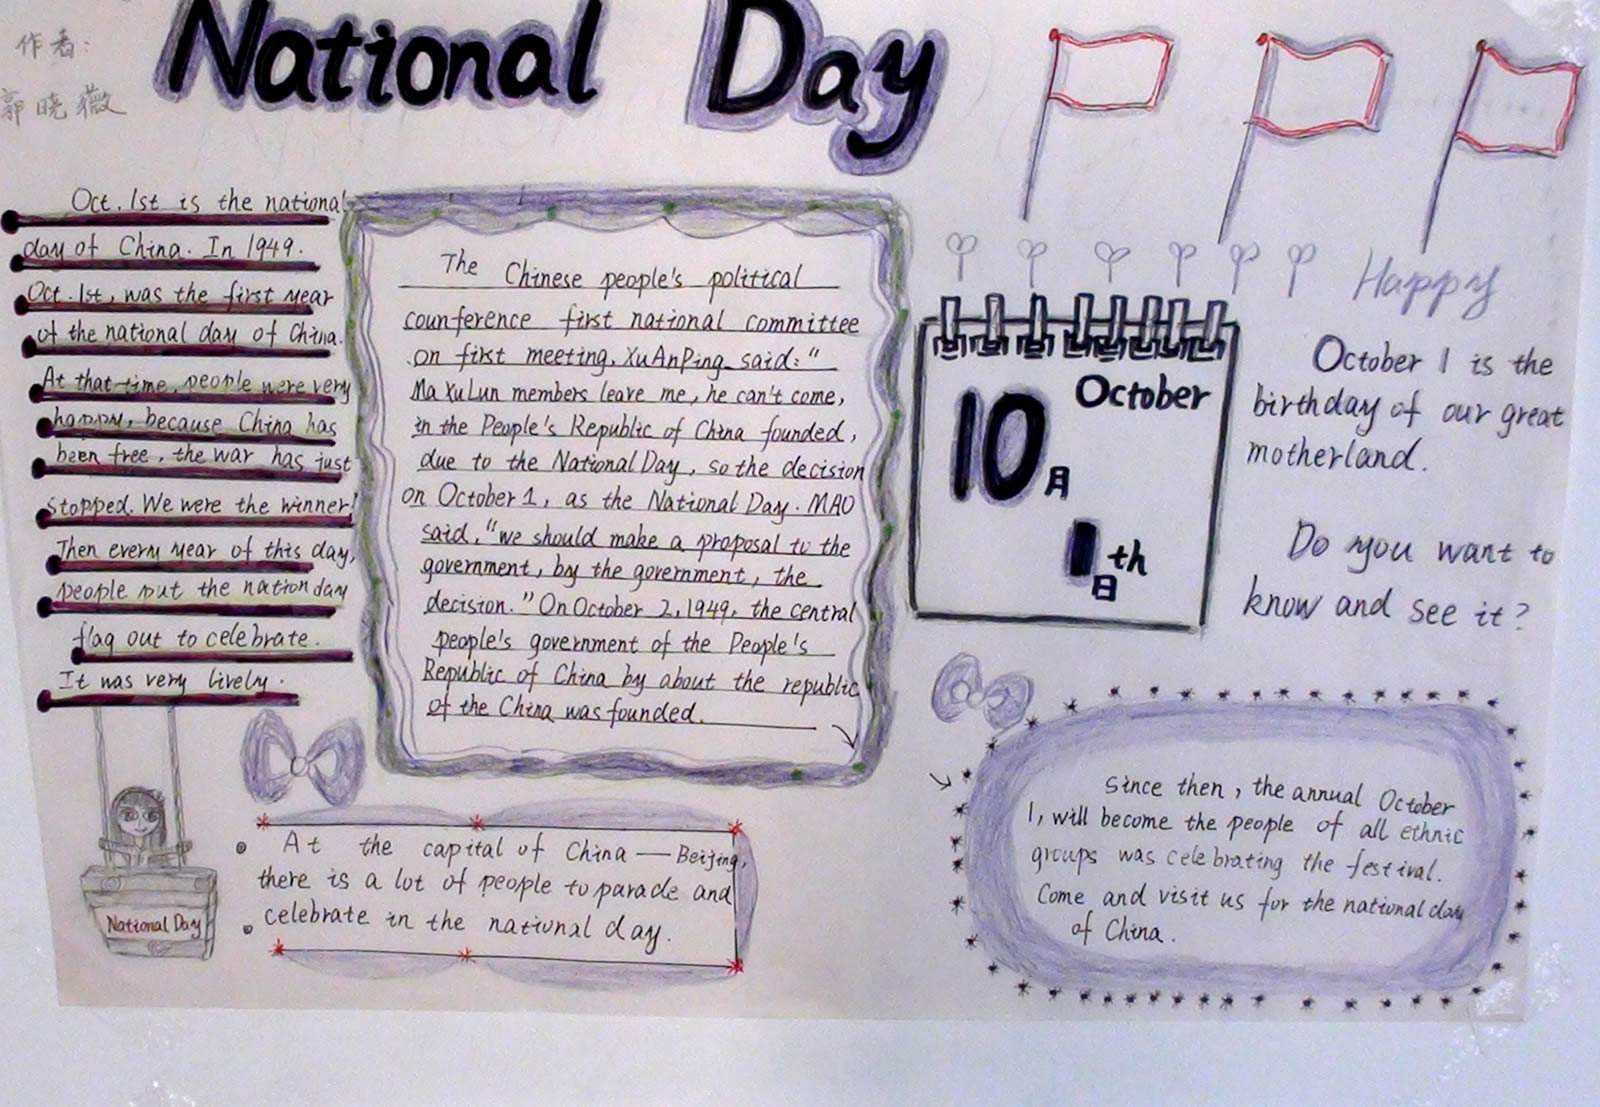 National Day
作者:
郭晓薇
Oct. 1st is the national
day of China. In 1949.
Oct. 1st, was the first year
of the national day of China.
At that time, people were very
happy, because China has
been free, the war has just
stopped. We were the winner!
Then every year of this day,
people put the nation day
flag out to celebrate.
It was very lively.
The Chinese people's political
counference first national committee
on first meeting, XuAnPing said: "
Ma XuLun members leave me, he can't come,
in the People's Republic of China founded,
due to the National Day, so the decision
on October 1, as the National Day. MAO
said, "we should make a proposal to the
government, by the government, the
decision." On October 2, 1949, the central
people's government of the People's
Republic of China by about the republic
of the China was founded.
October
10月
1th
日
Happy
October 1 is the
birthday of our great
motherland.
Do you want to
know and see it?
National Day
At the capital of China — Beijing,
there is a lot of people to parade and
celebrate in the national day.
Since then, the annual October
1, will become the people of all ethnic
groups was celebrating the festival.
Come and visit us for the national day
of China.